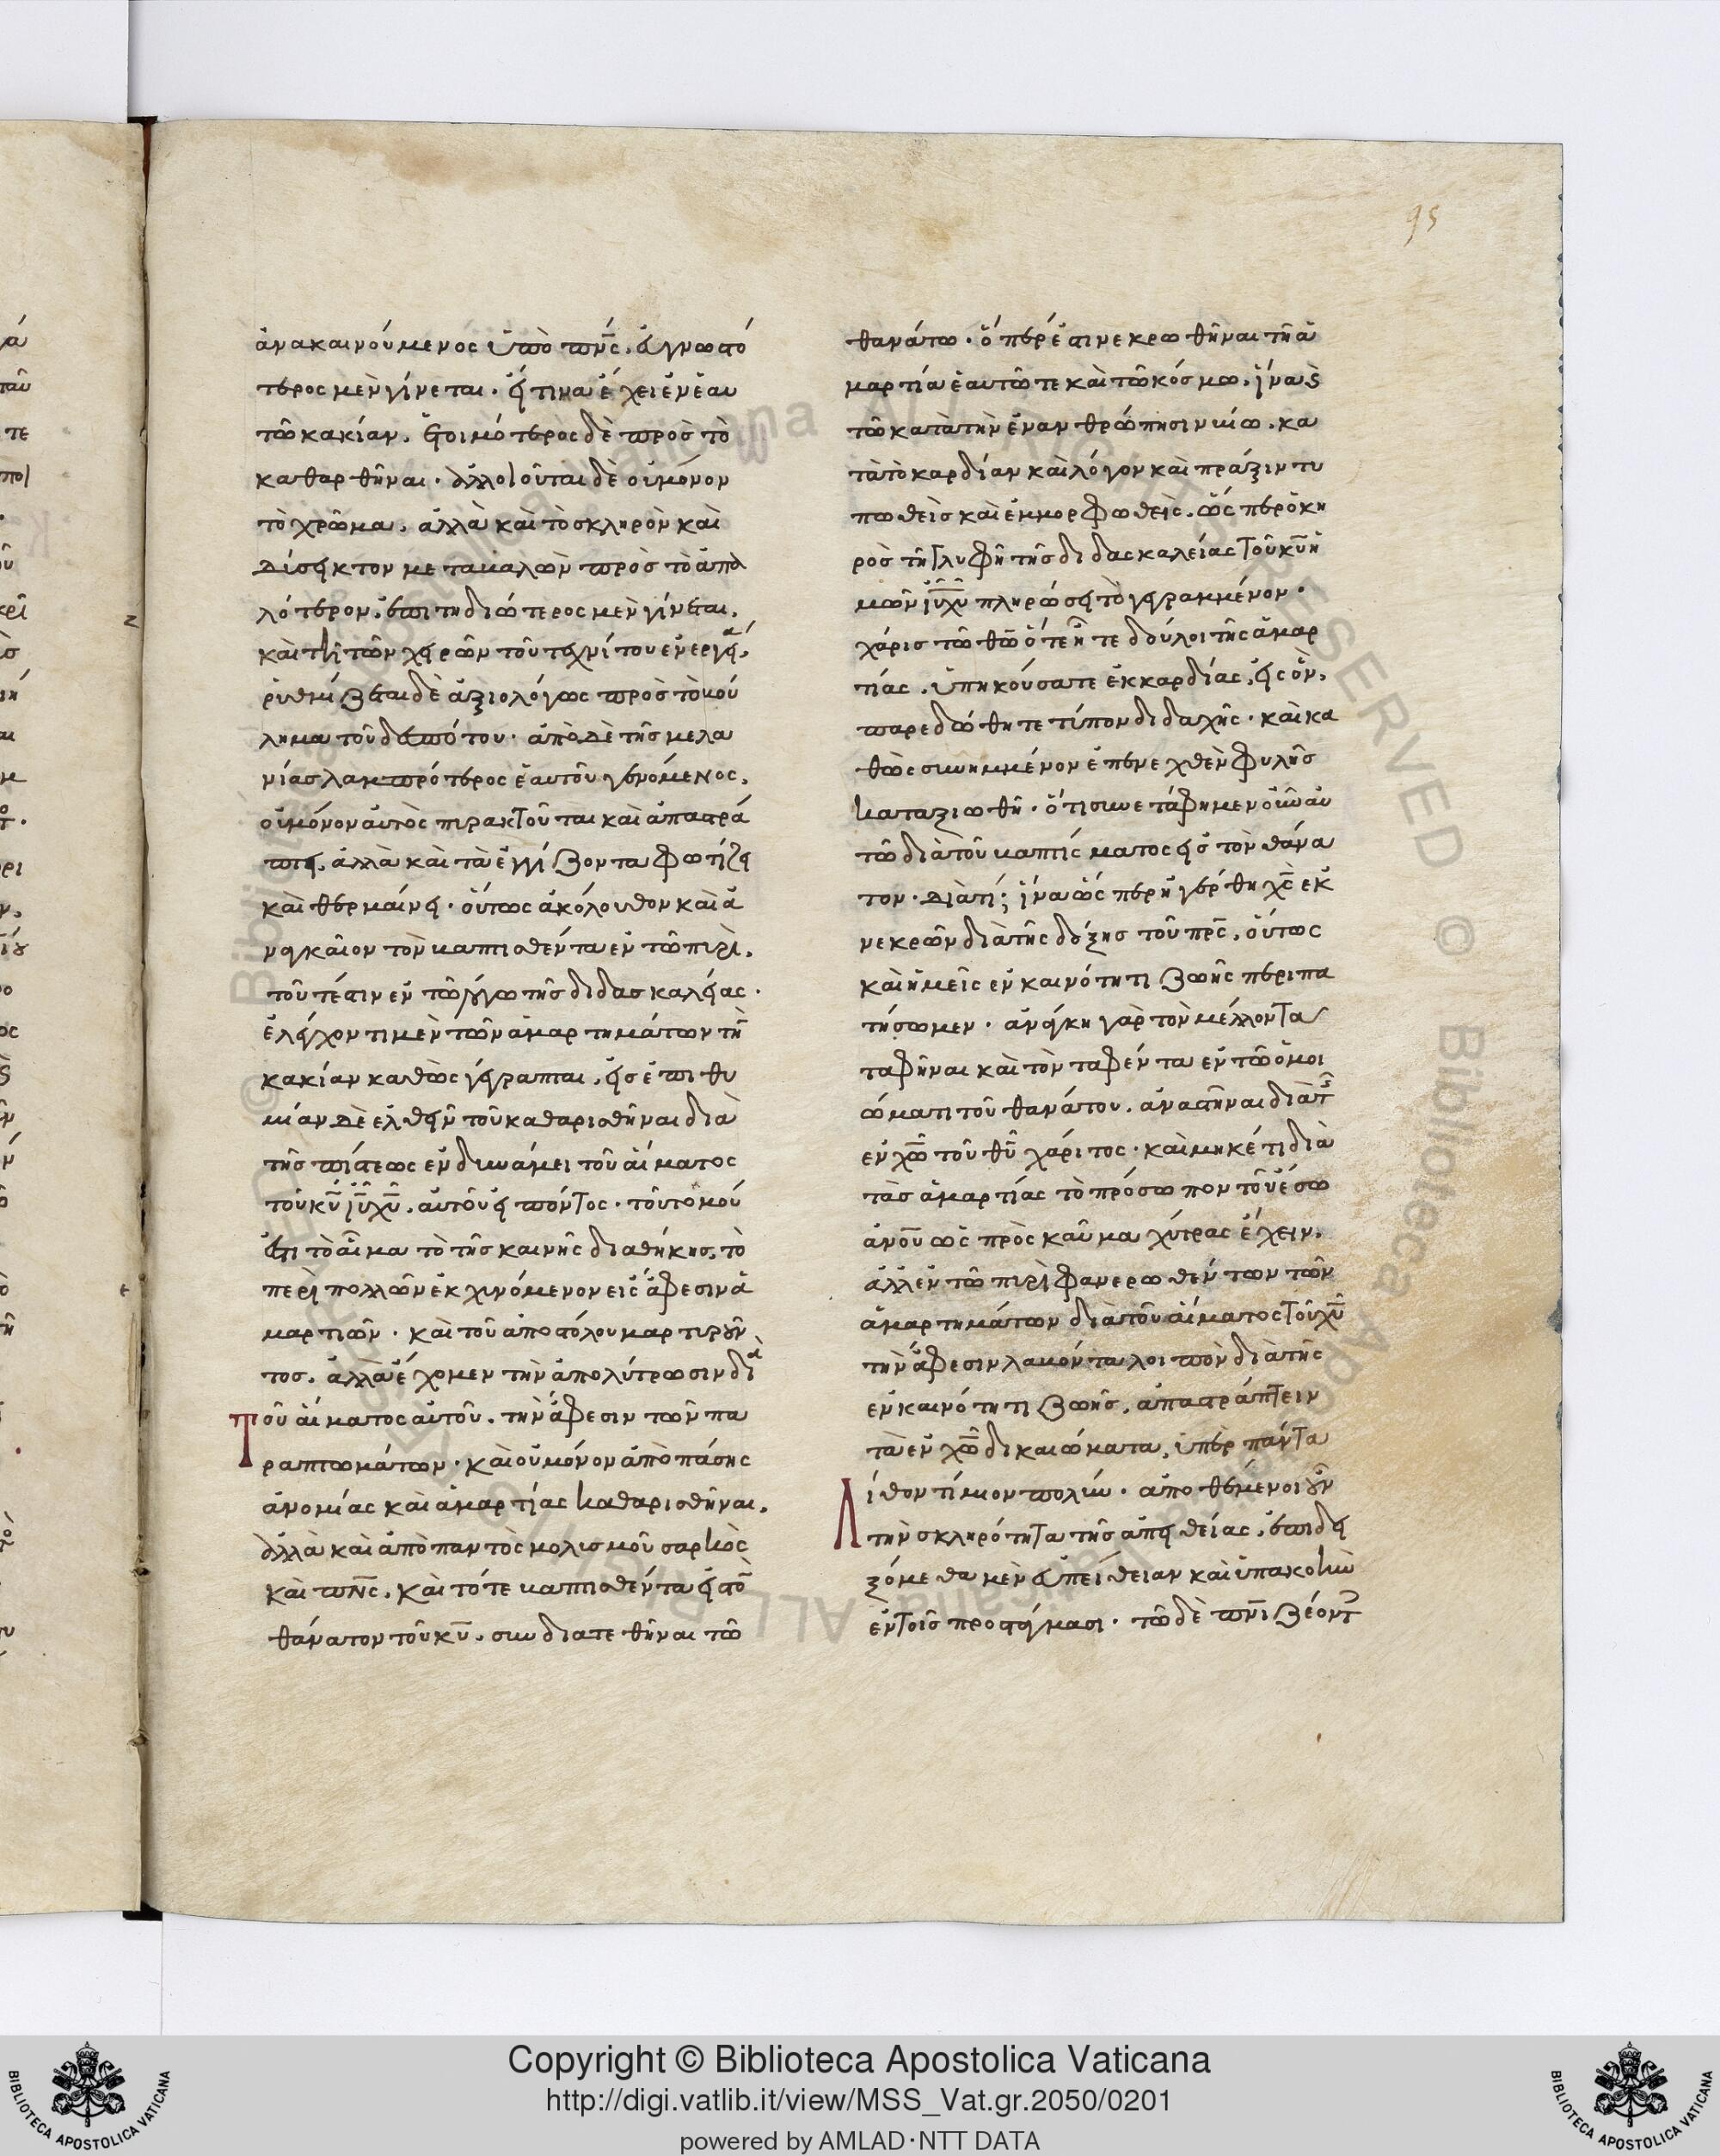 95
ἀνακαινούμενος ὑπὸ πνς, εὐγνωστό
τερος μὲν γίνεται· εἴ τινα ἔχει ἐν ἑαυ
τῶ κακίαν, ἑτοιμότερος δὲ πρὸς τὸ
καθαρθῆναι· ἀλλοιοῦται δὲ οὐ μόνον
τὸ χρῶμα, ἀλλὰ καὶ τὸ σκληρὸν καὶ
δύσεικτον μεταβαλὼν πρὸς τὸ ἁπα
λότερον, ἐπιτηδιώτερος μὲν γίνεται,
καὶ τῆ τῶν χειρῶν τοῦ τεχνίτου ἐνεργεία,
ῥυθμίζεται δὲ ἀξιολόγως πρὸς τὸ βού
λημα τοῦ δεσπότου· ἀπὸ δὲ τῆς μελα
νίας λαμπρότερος ἑαυτοῦ γενόμενος,
οὐ μόνον αὐτὸς πυρακτοῦται καὶ ἀπαστρά
πτει, ἀλλὰ καὶ τὰ ἐγγίζοντα φωτίζει
καὶ θερμαίνει· οὕτως ἀκόλουθον καὶ ἀ
ναγκαῖον τὸν βαπτισθέντα ἐν τῶ πυρὶ,
τοῦτέστιν ἐν τῶ λόγω τῆς διδασκαλείας·
ἐλέγχοντι μὲν τῶν ἁμαρτημάτων τὴν
κακίαν καθὼς γέγραπται, εἰς ἐπιθυ
μίαν δὲ ἐλθεῖν τοῦ καθαρισθῆναι διὰ
τῆς πίστεως ἐν δυνάμει τοῦ αἵματος
τοῦ κυ ἰυ χυ, αὐτοῦ εἰπόντος· τοῦτο μού
ἐστι τὸ αἷμα τὸ τῆς καινῆς διαθήκης, τὸ
περὶ πολλῶν ἐκχυνόμενον εἰς ἄφεσιν ἁ
μαρτιῶν· καὶ τοῦ ἀποστόλου μαρτυροῦν
τος, ἀλλὰ ἔχομεν τὴν ἀπολύτρωσιν διὰ
Τοῦ αἵματος αὐτοῦ, τὴν ἄφεσιν τῶν πα
ραπτωμάτων· καὶ οὐ μόνον ἀπὸ πάσης
ἀνομίας καὶ ἁμαρτίας καθαρισθῆναι,
ἀλλὰ καὶ ἀπὸ παντὸς μολισμοῦ σαρκὸς
καὶ πνς, καὶ τότε βαπτισθέντα εἰς τὸν
θάνατον τοῦ κυ, συνδιατεθῆναι τῶ
θανάτω· ὅπερ ἐστι νεκρωθῆναι τῆ ἁ
μαρτία ἑαυτῶ τε καὶ τῶ κόσμω, ἵνα
τῶ κατὰ τὴν ἐνανθρώπησιν υἱῶ, κα
τὰ τὸ καρδίαν καὶ λόγον καὶ πράξιν τυ
πωθεὶς καὶ ἐμμορφωθεὶς, ὥσπερ ὁ κη
ρὸς τῆ γλυφῆ τῆς διδασκαλείας τοῦ κυ ἡ
μῶν ἰυ χυ πληρώσει τὸ γεγραμμένον·
χάρις τῶ θω ὅτε ἦτε δοῦλοι τῆς ἁμαρ
τίας, ὑπηκούσατε ἐκ καρδίας, εἰς ὃν,
παρεδώθητε τύπον διδαχῆς· καὶ κα
θὼς συνημμένον ἐπενεχθὲν φυλῆς
καταξιωθῆ· ὅτι συνετάφημεν οὖν αὐ
τῶ διὰ τοῦ βαπτίσματος εἰς τὸν θάνα
τον· διὰ τί; ἵνα ὥσπερ ἠγέρθη χς ἐκ
νεκρῶν διὰ τῆς δόξης τοῦ πρς, οὕτως
καὶ ἡμεῖς ἐν καινότητι ζωῆς περιπα
τήσωμεν· ἀνάγκη γὰρ τὸν μέλλοντα
ταφῆναι καὶ τὸν ταφέντα ἐν τῶ ὁμοι
ώματι τοῦ θανάτου, ἀναστῆναι διὰ τῆς
ἐν χω τοῦ θυ χάριτος· καὶ μηκέτι διὰ
τὰς ἁμαρτίας τὸ πρόσωπον τοῦ ἔσω
ἀνου ὡς πρὸς καῦμα χύτρας ἔχειν,
ἀλλ' ἐν τῶ πυρὶ φανερωθέντων τῶν
ἁμαρτημάτων διὰ τοῦ αἵματος τοῦ χυ
τὴν ἄφεσιν λαβόντα λοιπὸν διὰ τῆς
ἐν καινότητι ζωῆς, ἀπαστράπτειν
τὰ ἐν χω δικαιώματα, ὑπὲρ πάντα
Λίθον τίμιον πολὺν· ἀποθέμενοι οὖν
τὴν σκληρότητα τῆς ἀπειθείας, ἐπιδει
ξόμεθα μὲν εὐπείθειαν καὶ ὑπακοὴν
ἐν τοῖς προστάγμασι· τῶ δὲ πνι ζέοντες
Copyright © Biblioteca Apostolica Vaticana
http://digi.vatlib.it/view/MSS_Vat.gr.2050/0201
powered by AMLAD·NTT DATA